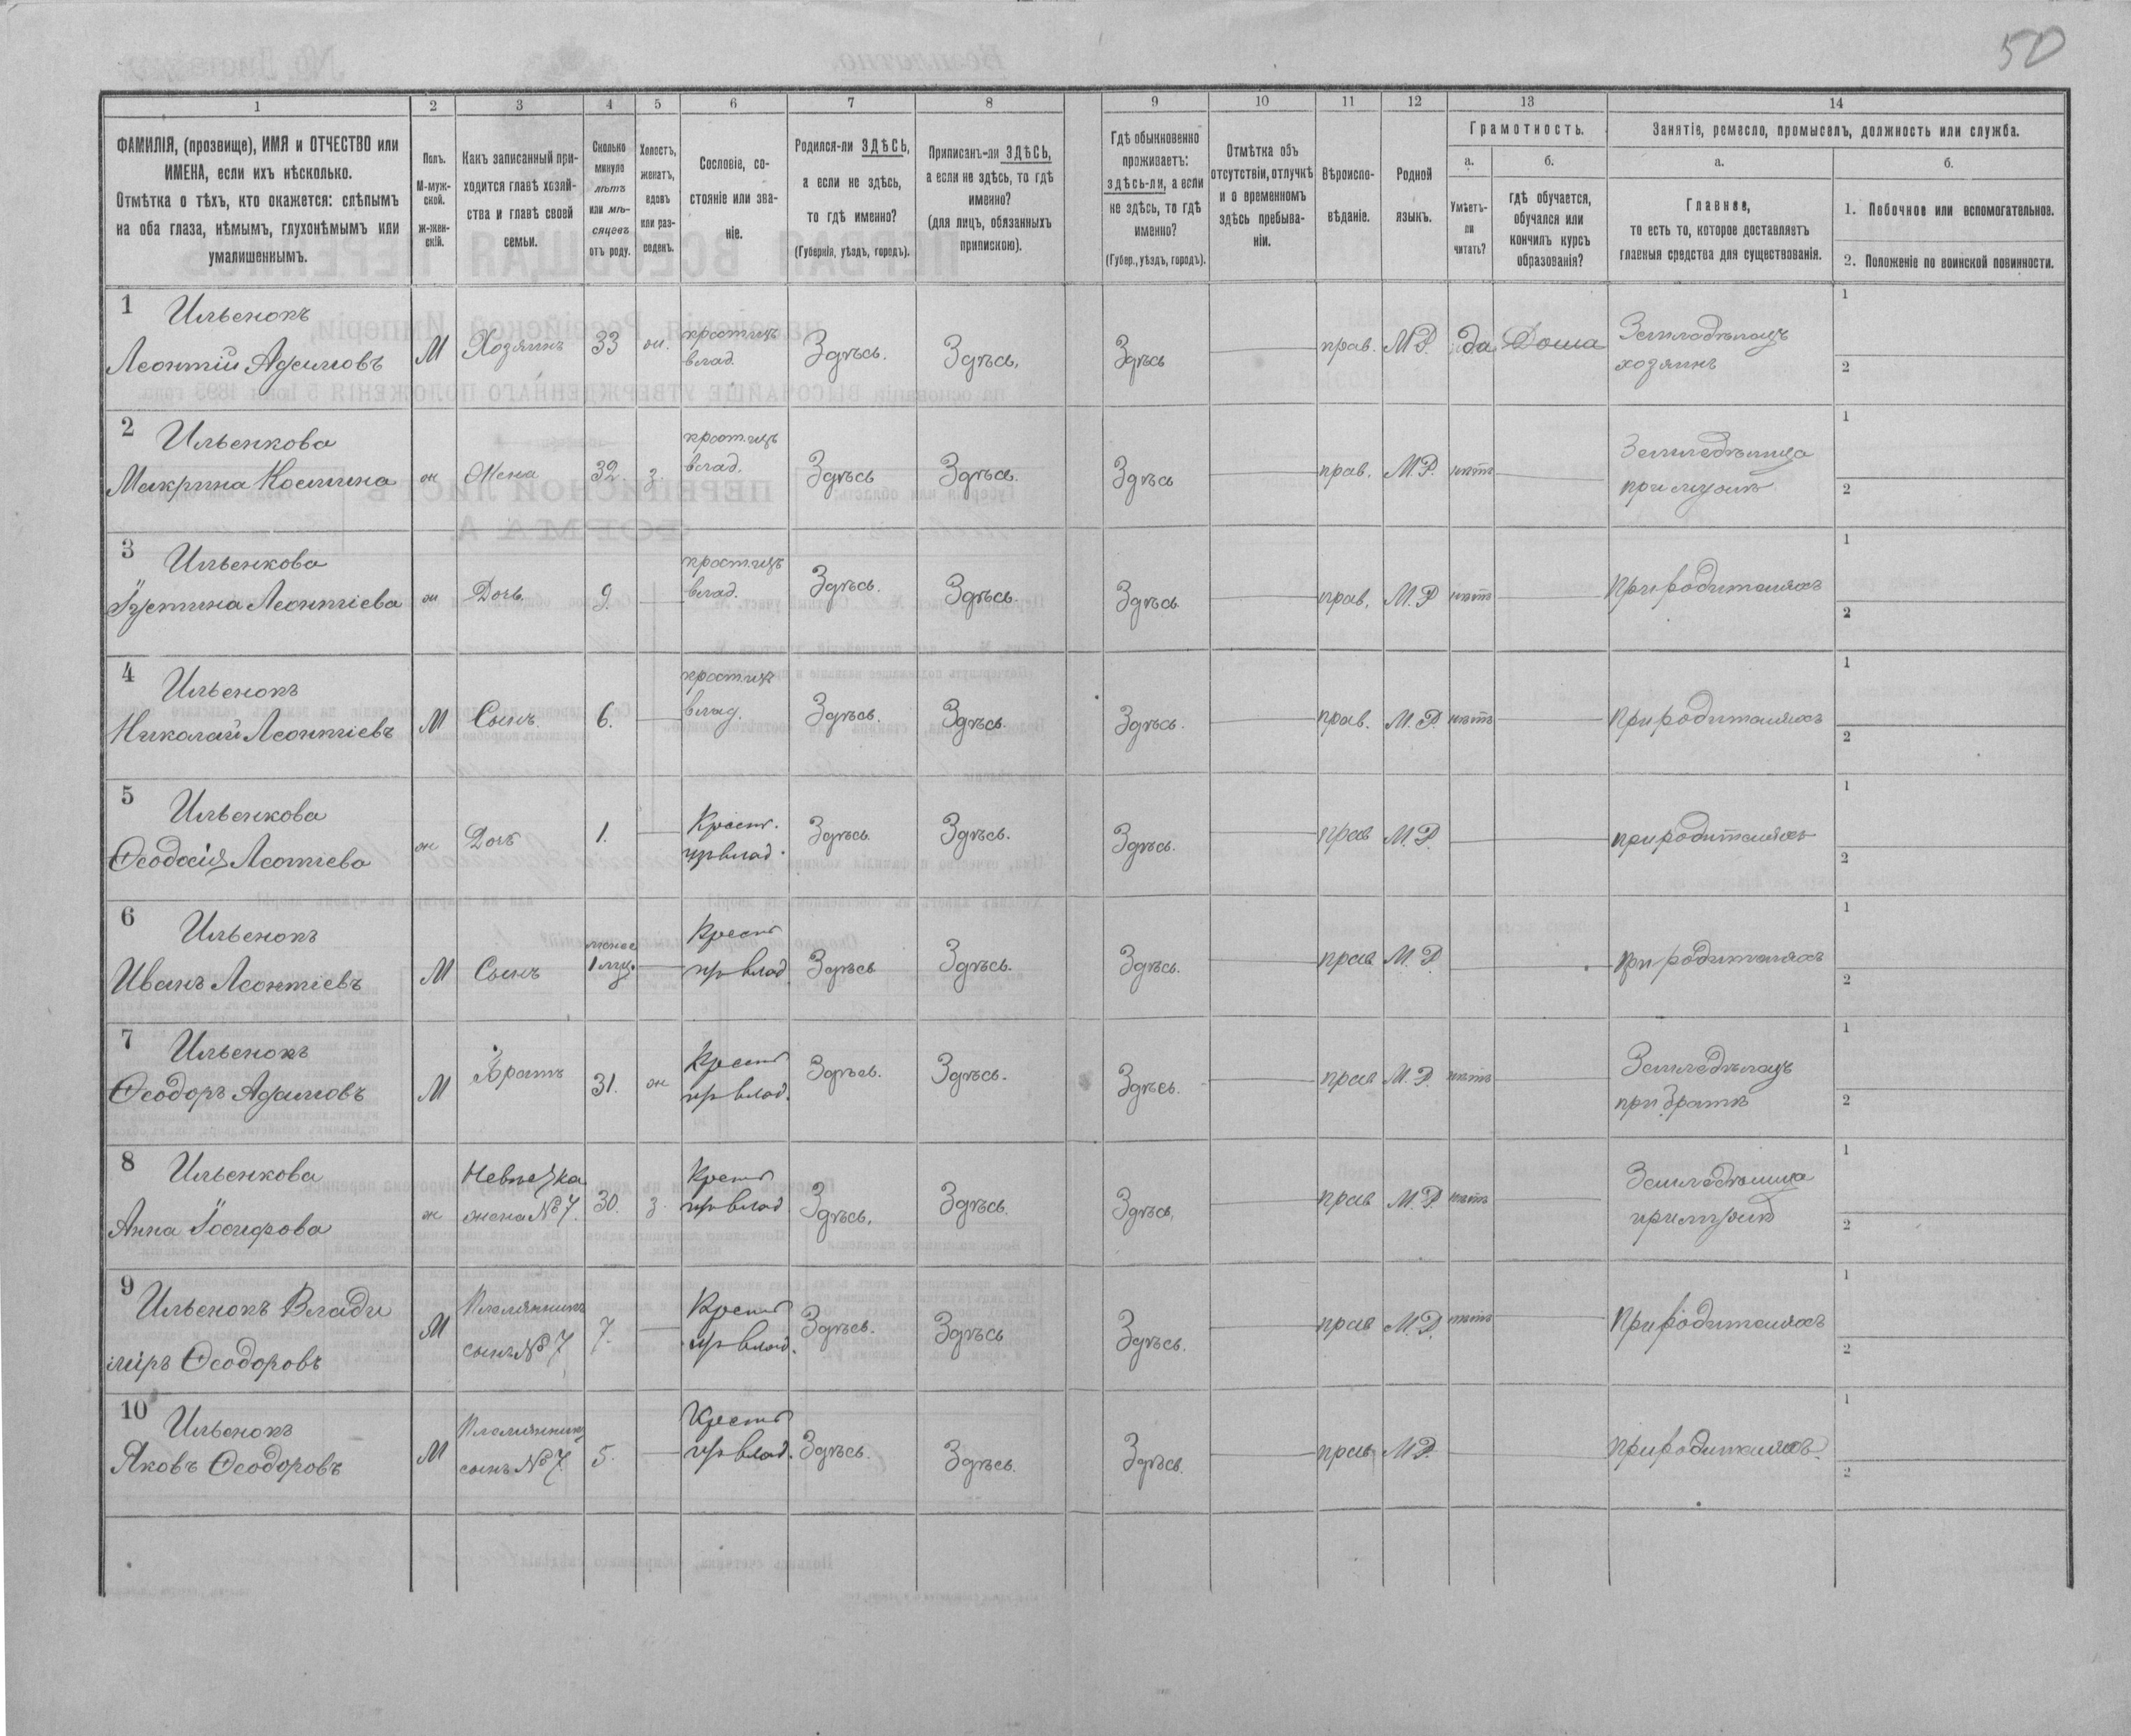 50
1 2 3 4 5 6 7 8 9 10 11 12 13 14
ФАМИЛІЯ, (прозвище), ИМЯ и ОТЧЕСТВО или
ИМЕНА, если ихъ нѣсколько.
Отмѣтка о тѣхъ, кто окажется: слѣпымъ
на оба глаза, нѣмымъ, глухонѣмымъ или
умалишеннымъ.
Полъ.
М-муж-
ской.
ж-жен-
скій.
Какъ записанный при-
ходится главѣ хозяй-
ства и главѣ своей
семьи.
Сколько
минуло
лѣтъ
или мѣ-
сяцевъ
отъ роду.
Холостъ,
женатъ,
вдовъ
или раз-
веденъ.
Сословіе, со-
стояніе или зва-
ніе.
Родился-ли ЗДѢСЬ,
а если не здѣсь,
то гдѣ именно?
(Губернія, уѣздъ, городъ).
Приписанъ-ли ЗДѢСЬ,
а если не здѣсь, то гдѣ
именно?
(для лицъ, обязанныхъ
припискою).
Гдѣ обыкновенно
проживаетъ:
здѣсь-ли, а если
не здѣсь, то гдѣ
именно?
(Губер., уѣздъ, городъ).
Отмѣтка объ
отсутствіи, отлучкѣ
и о временномъ
здѣсь пребыва-
ніи.
Вѣроиспо-
вѣданіе.
Родной
языкъ.
Грамотность.
а.
Умѣетъ-
ли
читать?
б.
гдѣ обучается,
обучался или
кончилъ курсъ
образованія?
Занятіе, ремесло, промыселъ, должность или служба.
а.
Главное,
то есть то, которое доставляетъ
главныя средства для существованія.
б.
1. Побочное или вспомогательное.
2. Положеніе по воинской повинности.
1 Ильенокъ
Леонтій Адамовъ М Хозяинъ 33 ж. влад. Здѣсь. Здѣсь. Здѣсь прав. М.Р. да Дома Земледѣлецъ
хозяинъ
1
2
2 Ильенкова
Макрина Космина ж Жена 32. з. влад. Здѣсь Здѣсь. Здѣсь прав. М.Р. нѣтъ
при мужѣ
1
2
3 Ильенкова
Леонтіева ж Дочь 9. влад. Здѣсь. Здѣсь Здѣсь прав. М.Р нѣтъ При родителяхъ
1
2
4 Ильенокъ
Николай Леонтіевъ М Сынъ 6. влад. Здѣсь. Здѣсь. Здѣсь. прав. М.Р. нѣтъ При родителяхъ
1
2
5 Ильенкова
Ѳеодосія Леонтіева ж Дочь 1. Крест.
влад. Здѣсь. Здѣсь. Здѣсь. прав М.Р. при родителяхъ
1
2
6 Ильенокъ
Иванъ Леонтіевъ М Сынъ менее
1 мѣс. Крест
влад Здѣсь Здѣсь. Здѣсь. прав М.Р. при родителяхъ
1
2
7 Ильенокъ
Ѳеодоръ Адамовъ М Братъ 31. ж Крест
влад. Здѣсь. Здѣсь. Здѣсь. прав М.Р. нѣтъ Земледѣлецъ
при братѣ
1
2
8 Ильенкова
Анна Іосифова ж Невѣстка
жена №7. 30. з. Крест
влад Здѣсь. Здѣсь. Здѣсь. прав М.Р. нѣтъ
при мужѣ
1
2
9 Ильенокъ Влади
міръ Ѳеодоровъ М Племянникъ
сынъ №7 7. Крест
влад. Здѣсь. Здѣсь Здѣсь. прав М.Р. нѣтъ При родителяхъ
1
2
10 Ильенокъ
Яковъ Ѳеодоровъ М Племянникъ
сынъ №7. 5. Крест
влад. Здѣсь. Здѣсь. Здѣсь. прав М.Р. при родителяхъ
1
2